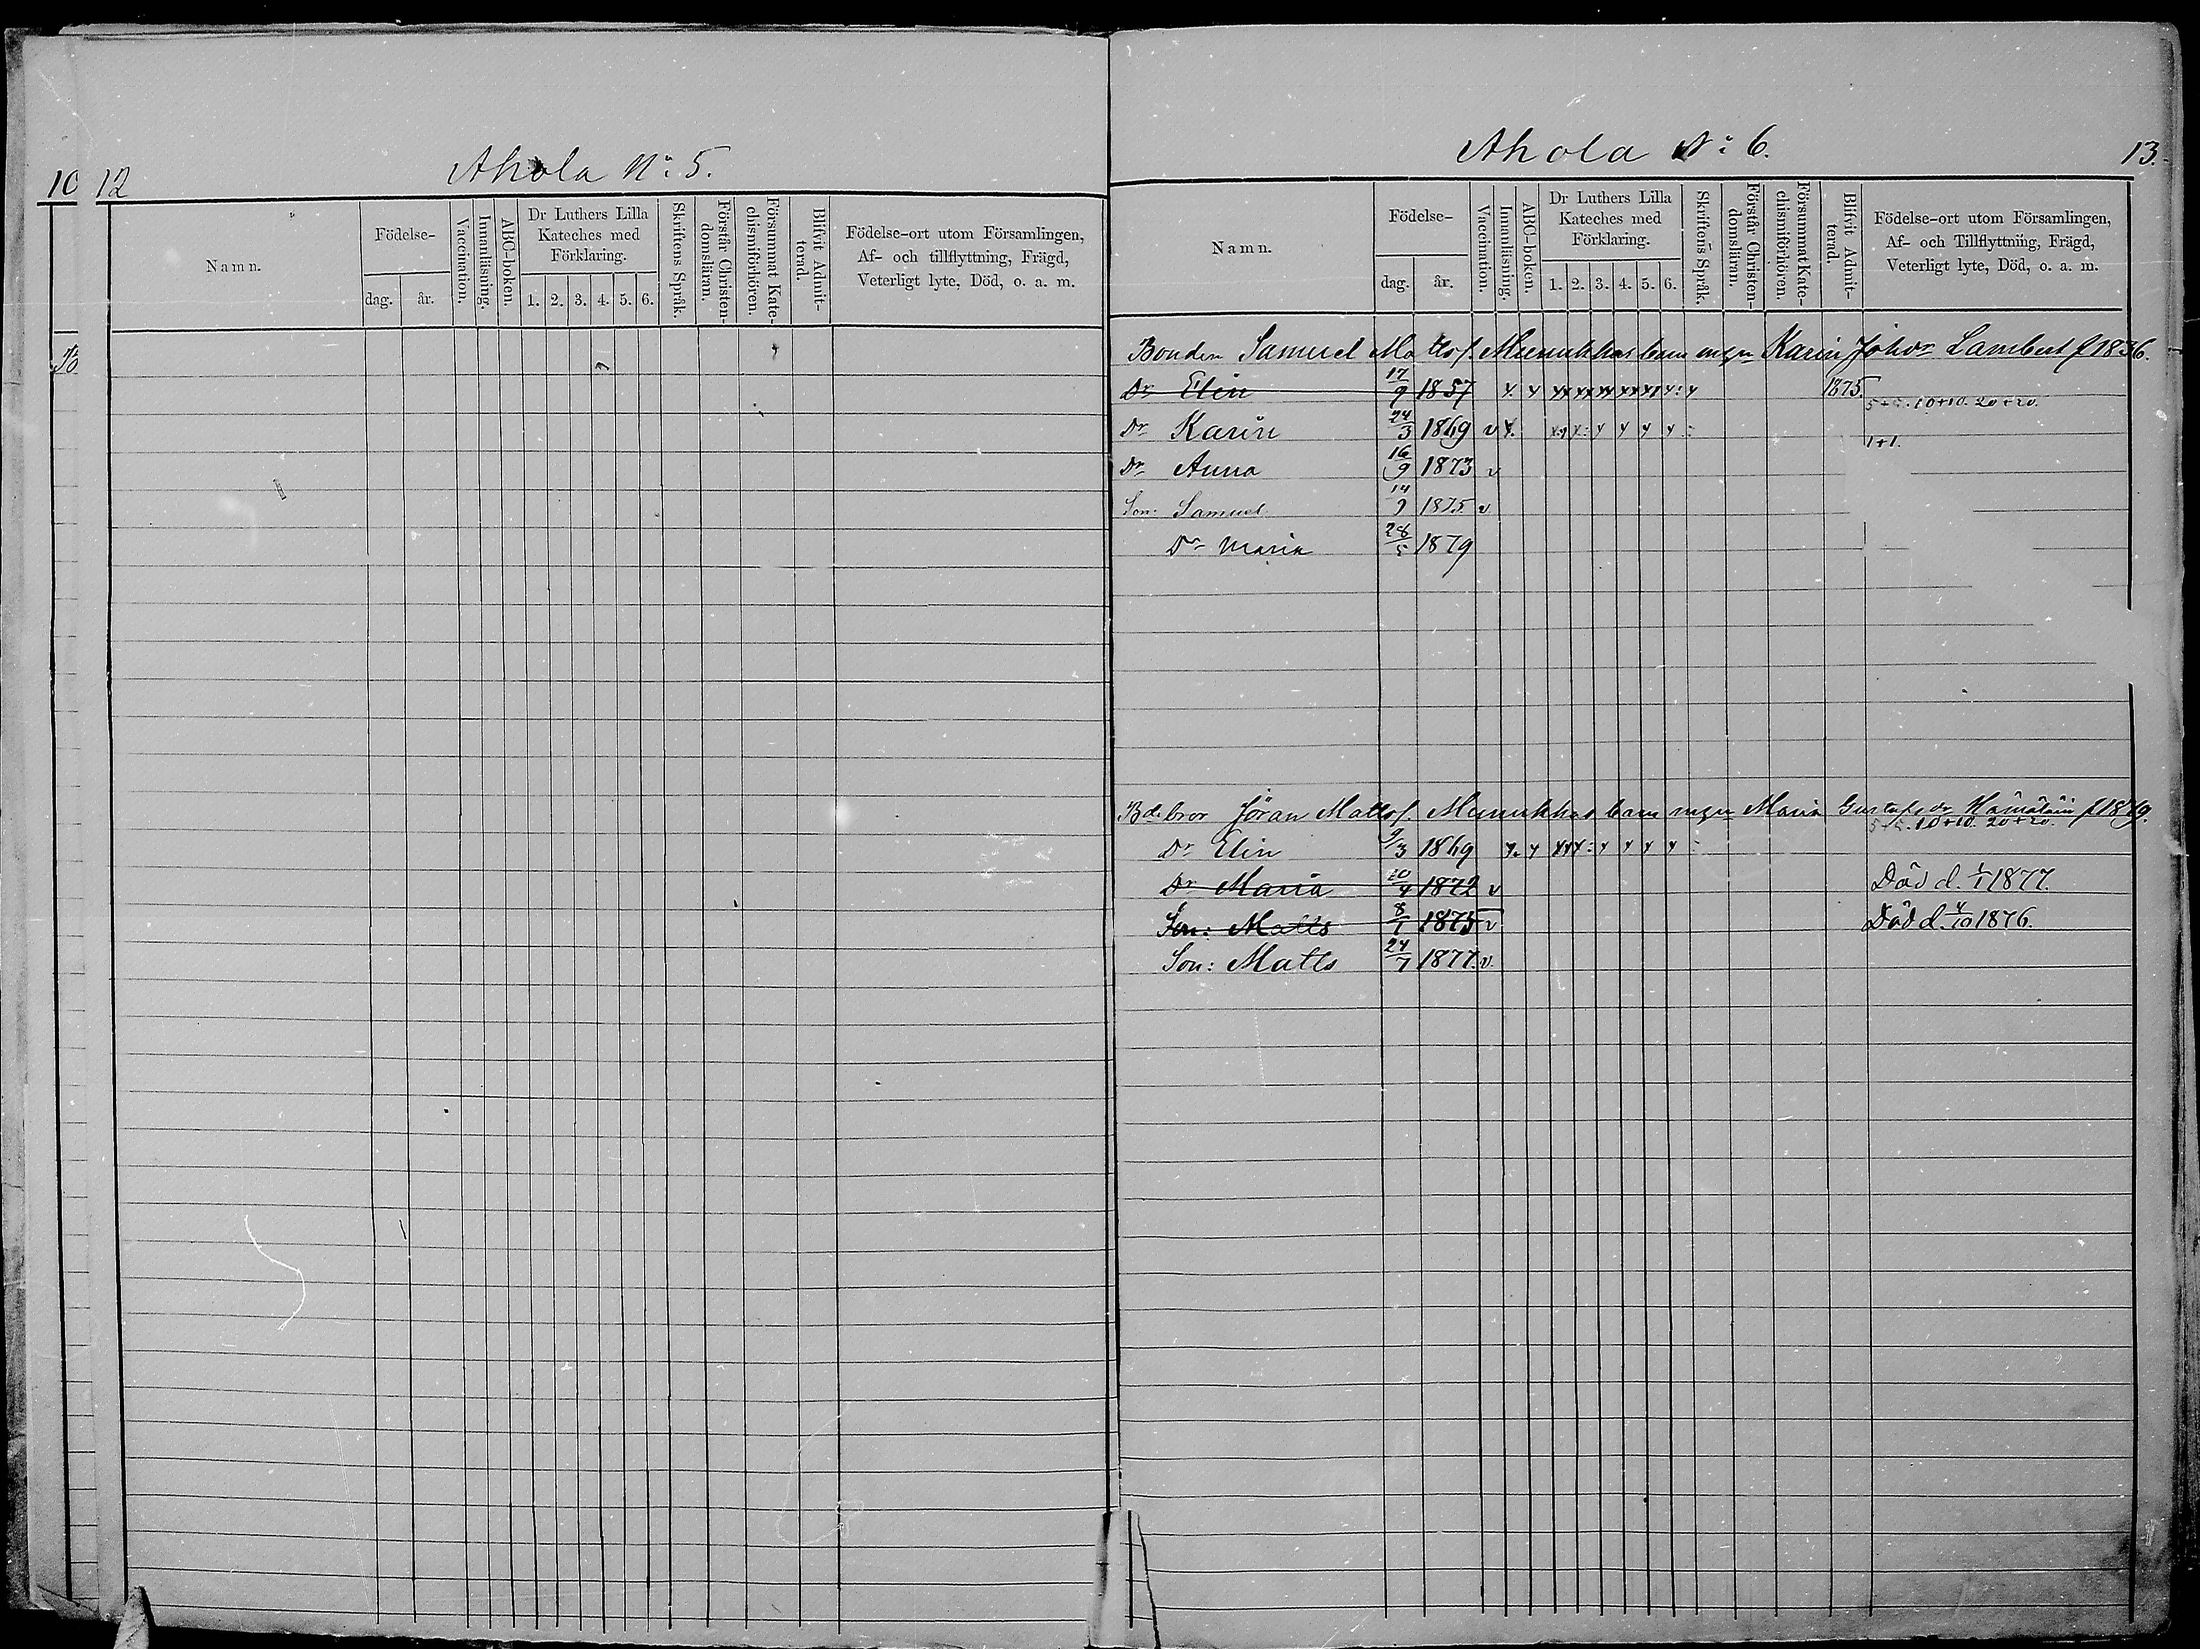 10
12
Ahola No: 5.
Namn.
Födelse-
dag.
år.
Vaccination.
Innanläsning.
ABC-boken.
Dr Luthers Lilla Kateches med Förklaring.
1. 2. 3. 4. 5. 6.
Skriftens Språk.
Förstår Christendomsläran.
Försummat Katechismiförhören.
Blifvit Admitterad.
Födelse-ort utom Församlingen,
Af- och tillflyttning, Frägd,
Veterligt lyte, Död, o. a. m.
Ahola No: 6.
13.
Namn.
Födelse-
dag.
år.
Vaccination.
Innanläsning.
ABC-boken.
Dr Luthers Lilla
Kateches med
Förklaring.
1. 2. 3. 4. 5. 6.
Skriftens Språk.
Förstår Christen-
domsläran.
Försummat Kate-
chismiförhören.
Blifvit Admit-
terad.
Födelse-ort utom Församlingen,
Af- och Tillflyttning, Frägd,
Veterligt lyte, Död, o. a. m.
Bonden Samuel Matts f. Munukkas barn Karin Johdr Lambert f 1836.
Dr Elin 17/9 1857 1875 5+5. 10+10. 20+20.
Dr Karin 24/3 1869 v 1+1.
Dr Anna 16/9 1873 v
Son: Samuel 14/9 1875 v
Dr Maria 28/5 1879
Bdebror Jöran Matts f. Munukkas barn Maria Gustafsdr
5+5. 10+10. 20+20.
Dr Elin 9/3 1869
Dr Maria 20/4 1872 v Död d. 1/1 1877.
Son: Matts 8/1 1875 v Död d. 4/10 1876.
Son: Matts 24/7 1877. v.